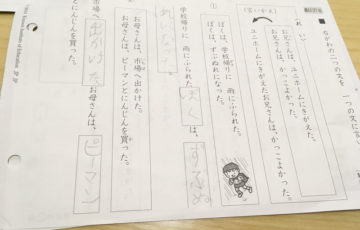 二つの文を
れい
お兄さんは、ユニホームにきがえた。
お兄さんは、かっこよかった。
ユニホームにきがえたお兄さんは、かっこよかった。
①
ぼくは、学校帰りに 雨にふられた。
ぼくは、ずぶぬれになった。
学校帰りに 雨にふられた ぼくは、ずぶぬ
れになった。
お母さんは、市場へ出かけた。
お母さんは、ピーマンとにんじんを買った。
市場へ出かけたお母さんは、ピーマン
とにんじんを買った。
Kumon Institute of Education JP JP